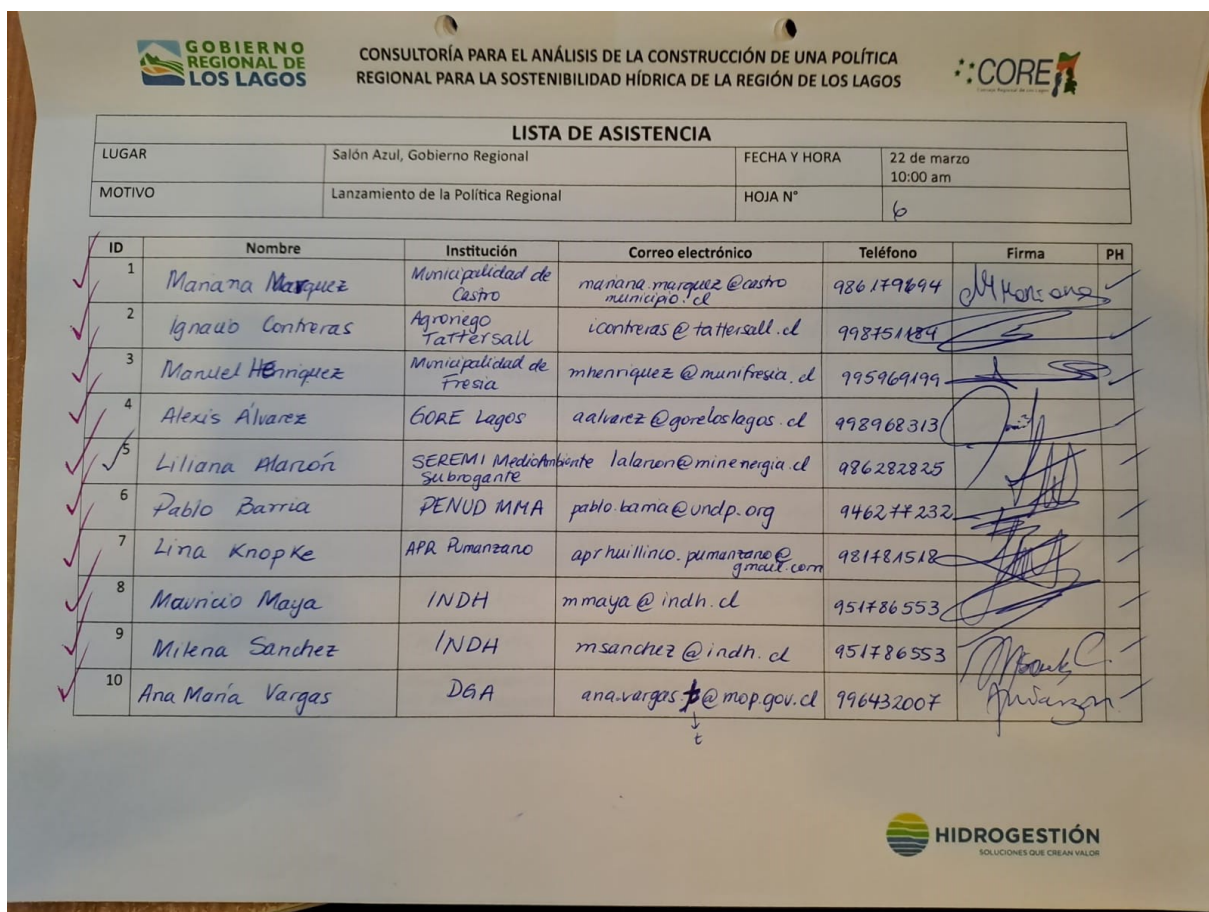 GOBIERNO
REGIONAL DE
LOS LAGOS
CONSULTORÍA PARA EL ANÁLISIS DE LA CONSTRUCCIÓN DE UNA POLÍTICA
REGIONAL PARA LA SOSTENIBILIDAD HÍDRICA DE LA REGIÓN DE LOS LAGOS
CORE
LISTA DE ASISTENCIA
LUGAR Salón Azul, Gobierno Regional FECHA Y HORA 22 de marzo
10:00 am
MOTIVO Lanzamiento de la Política Regional HOJA N° 6
ID Nombre Institución Correo electrónico Teléfono Firma PH
1 Mariana Marquez Municipalidad de Castro mariana.marquez@castromunicipio.cl 986179694
2 Ignacio Contreras Agroriego Tattersall icontreras@tattersall.cl 998751184
3 Manuel Henriquez Municipalidad de Fresia mhenriquez@munifresia.cl 995969199
4 Alexis Álvarez GORE Lagos aalvarez@goreloslagos.cl 998968313
5 Liliana Alarcón SEREMI MedioAmbiente Subrogante lalarcon@minenergia.cl 986282825
6 Pablo Barria PENUD MMA pablo.barria@undp.org 946277232
7 Lina Knopke APR Pumanzano aprhuillinco.pumanzano@gmail.com 981781518
8 Mauricio Maya INDH mmaya@indh.cl 951786553
9 Milena Sanchez INDH msanchez@indh.cl 951786553
10 Ana María Vargas DGA ana.vargas t@mop.gov.cl 996432007
t
HIDROGESTIÓN
SOLUCIONES QUE CREAN VALOR